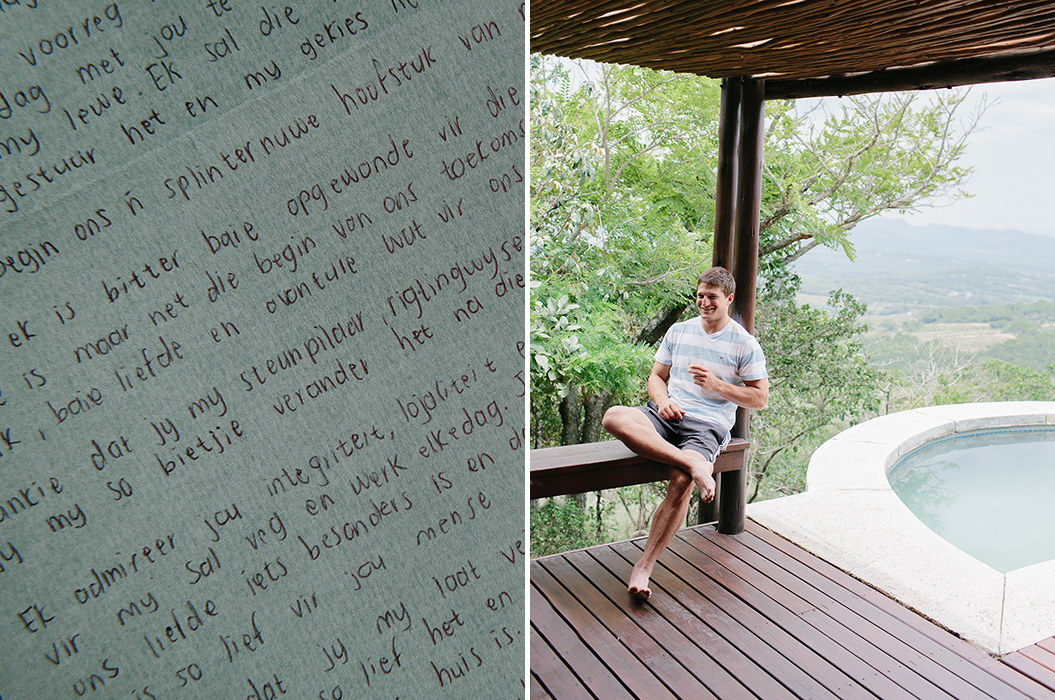 voorreg
dag met jou te
my lewe. Ek sal die
gestuur het en my gekies
begin ons ñ splinternuwe hoofstuk van
ek is bitter baie opgewonde vir die
is maar net die begin van ons toekoms
baie liefde en avonture wat vir ons
dat jy my steunpilaar, rigtingwyse
my so bietjie verander het na die
Ek admireer jou integriteit, lojaliteit
vir my sal veg en werk elkedag.
ons liefde iets besonders is en
is so lief vir jou mense
dat jy my laat
so lief het en
huis is.